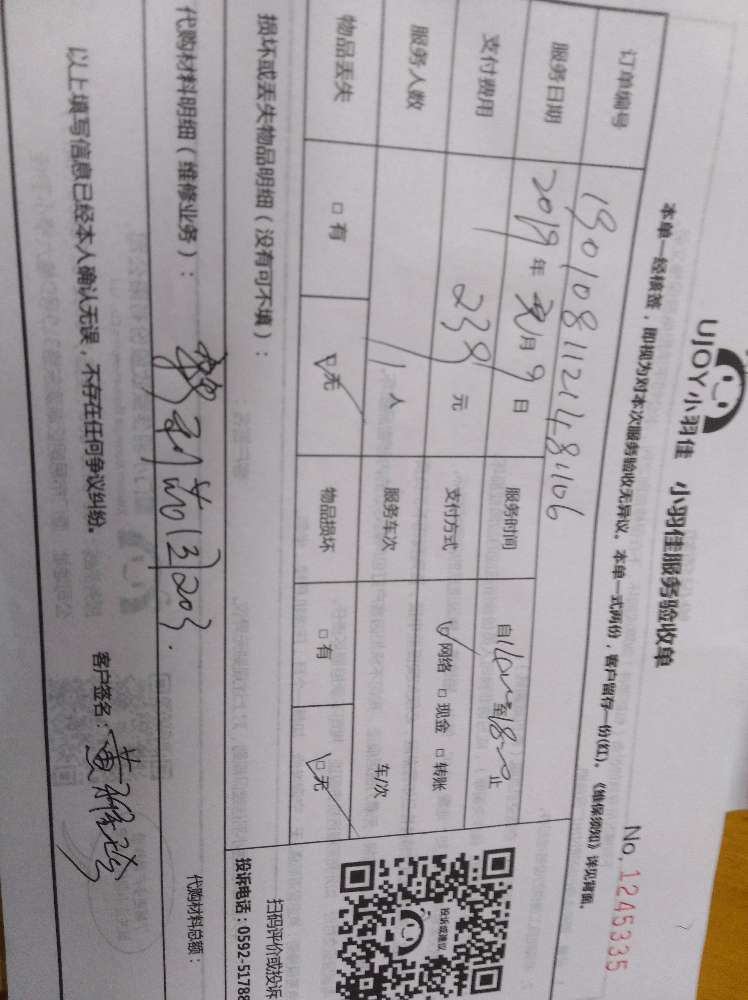 UJOY小羽佳 小羽佳服务验收单
No. 1245335
本单一经核签，即视为对本次服务验收无异议。本单一式两份，客户留存一份(红)。《维保须知》详见背面。
订单编号 190108112148106
服务日期 2019年 月9日 服务时间 自 至 止
支付费用 238元 支付方式 ☑网络 □现金 □转账
服务人数 1人 服务车次 车/次
物品丢失 □有 ☑无 物品损坏 □有 ☑无
损坏或丢失物品明细（没有可不填）：
投诉或建议
扫码评价或投诉
投诉电话：0592-51788
代购材料明细（维修业务）： 203. 代购材料总额：
以上填写信息已经本人确认无误，不存在任何争议纠纷。 客户签名：黄雅